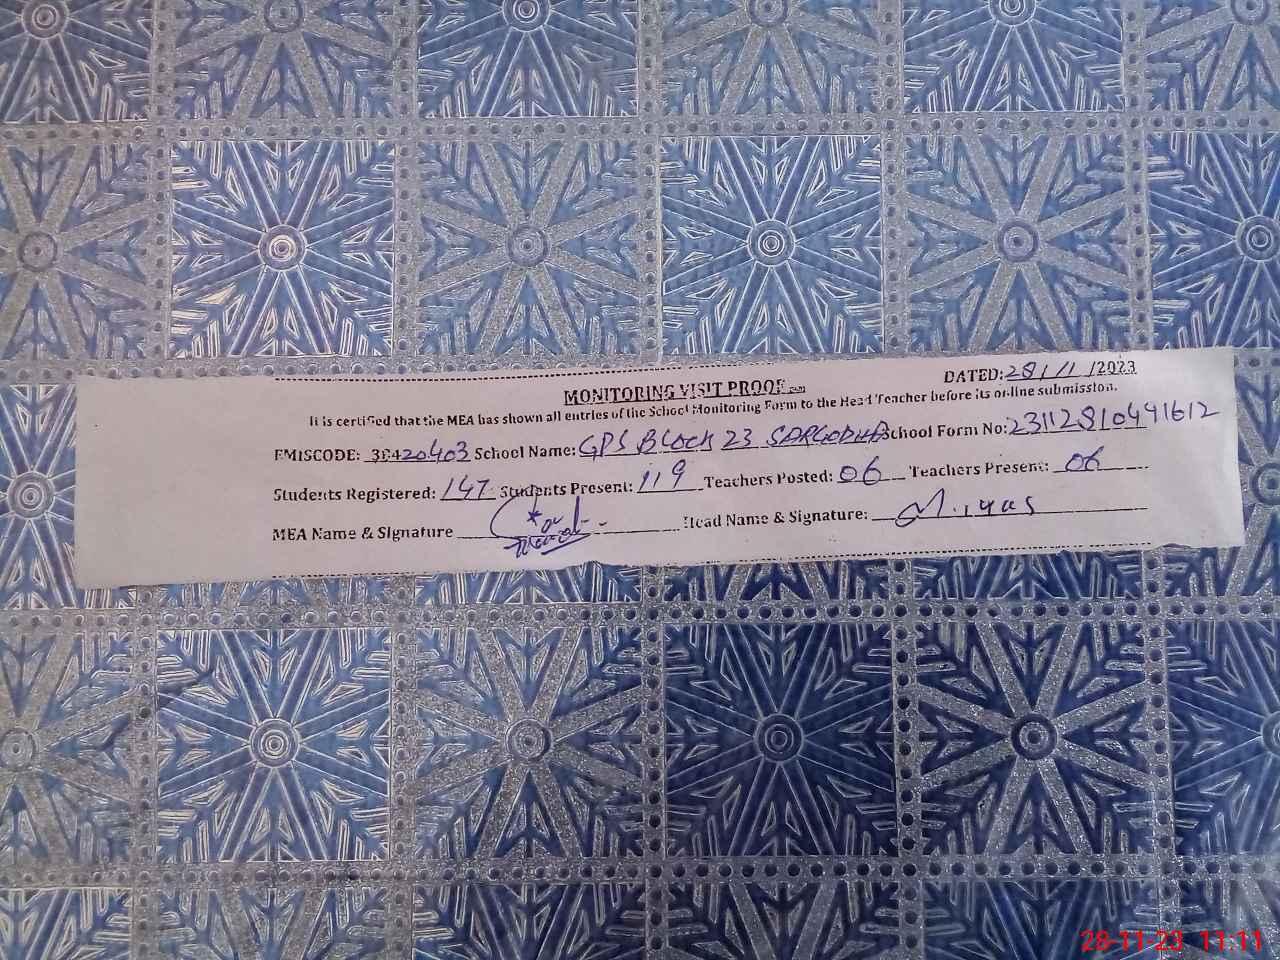 MONITORING VISIT PROOF
DATED: 28/11/2023
It is certified that the MEA has shown all entries of the School Monitoring Form to the Head Teacher before its online submission.
EMISCODE: 38420403 School Name: GPS Block 23 SARGODHA School Form No: 23112810491612
Students Registered: 147 Students Present: 119 Teachers Posted: 06 Teachers Present: 06
MEA Name & Signature Head Name & Signature:
28-11-23 11:11